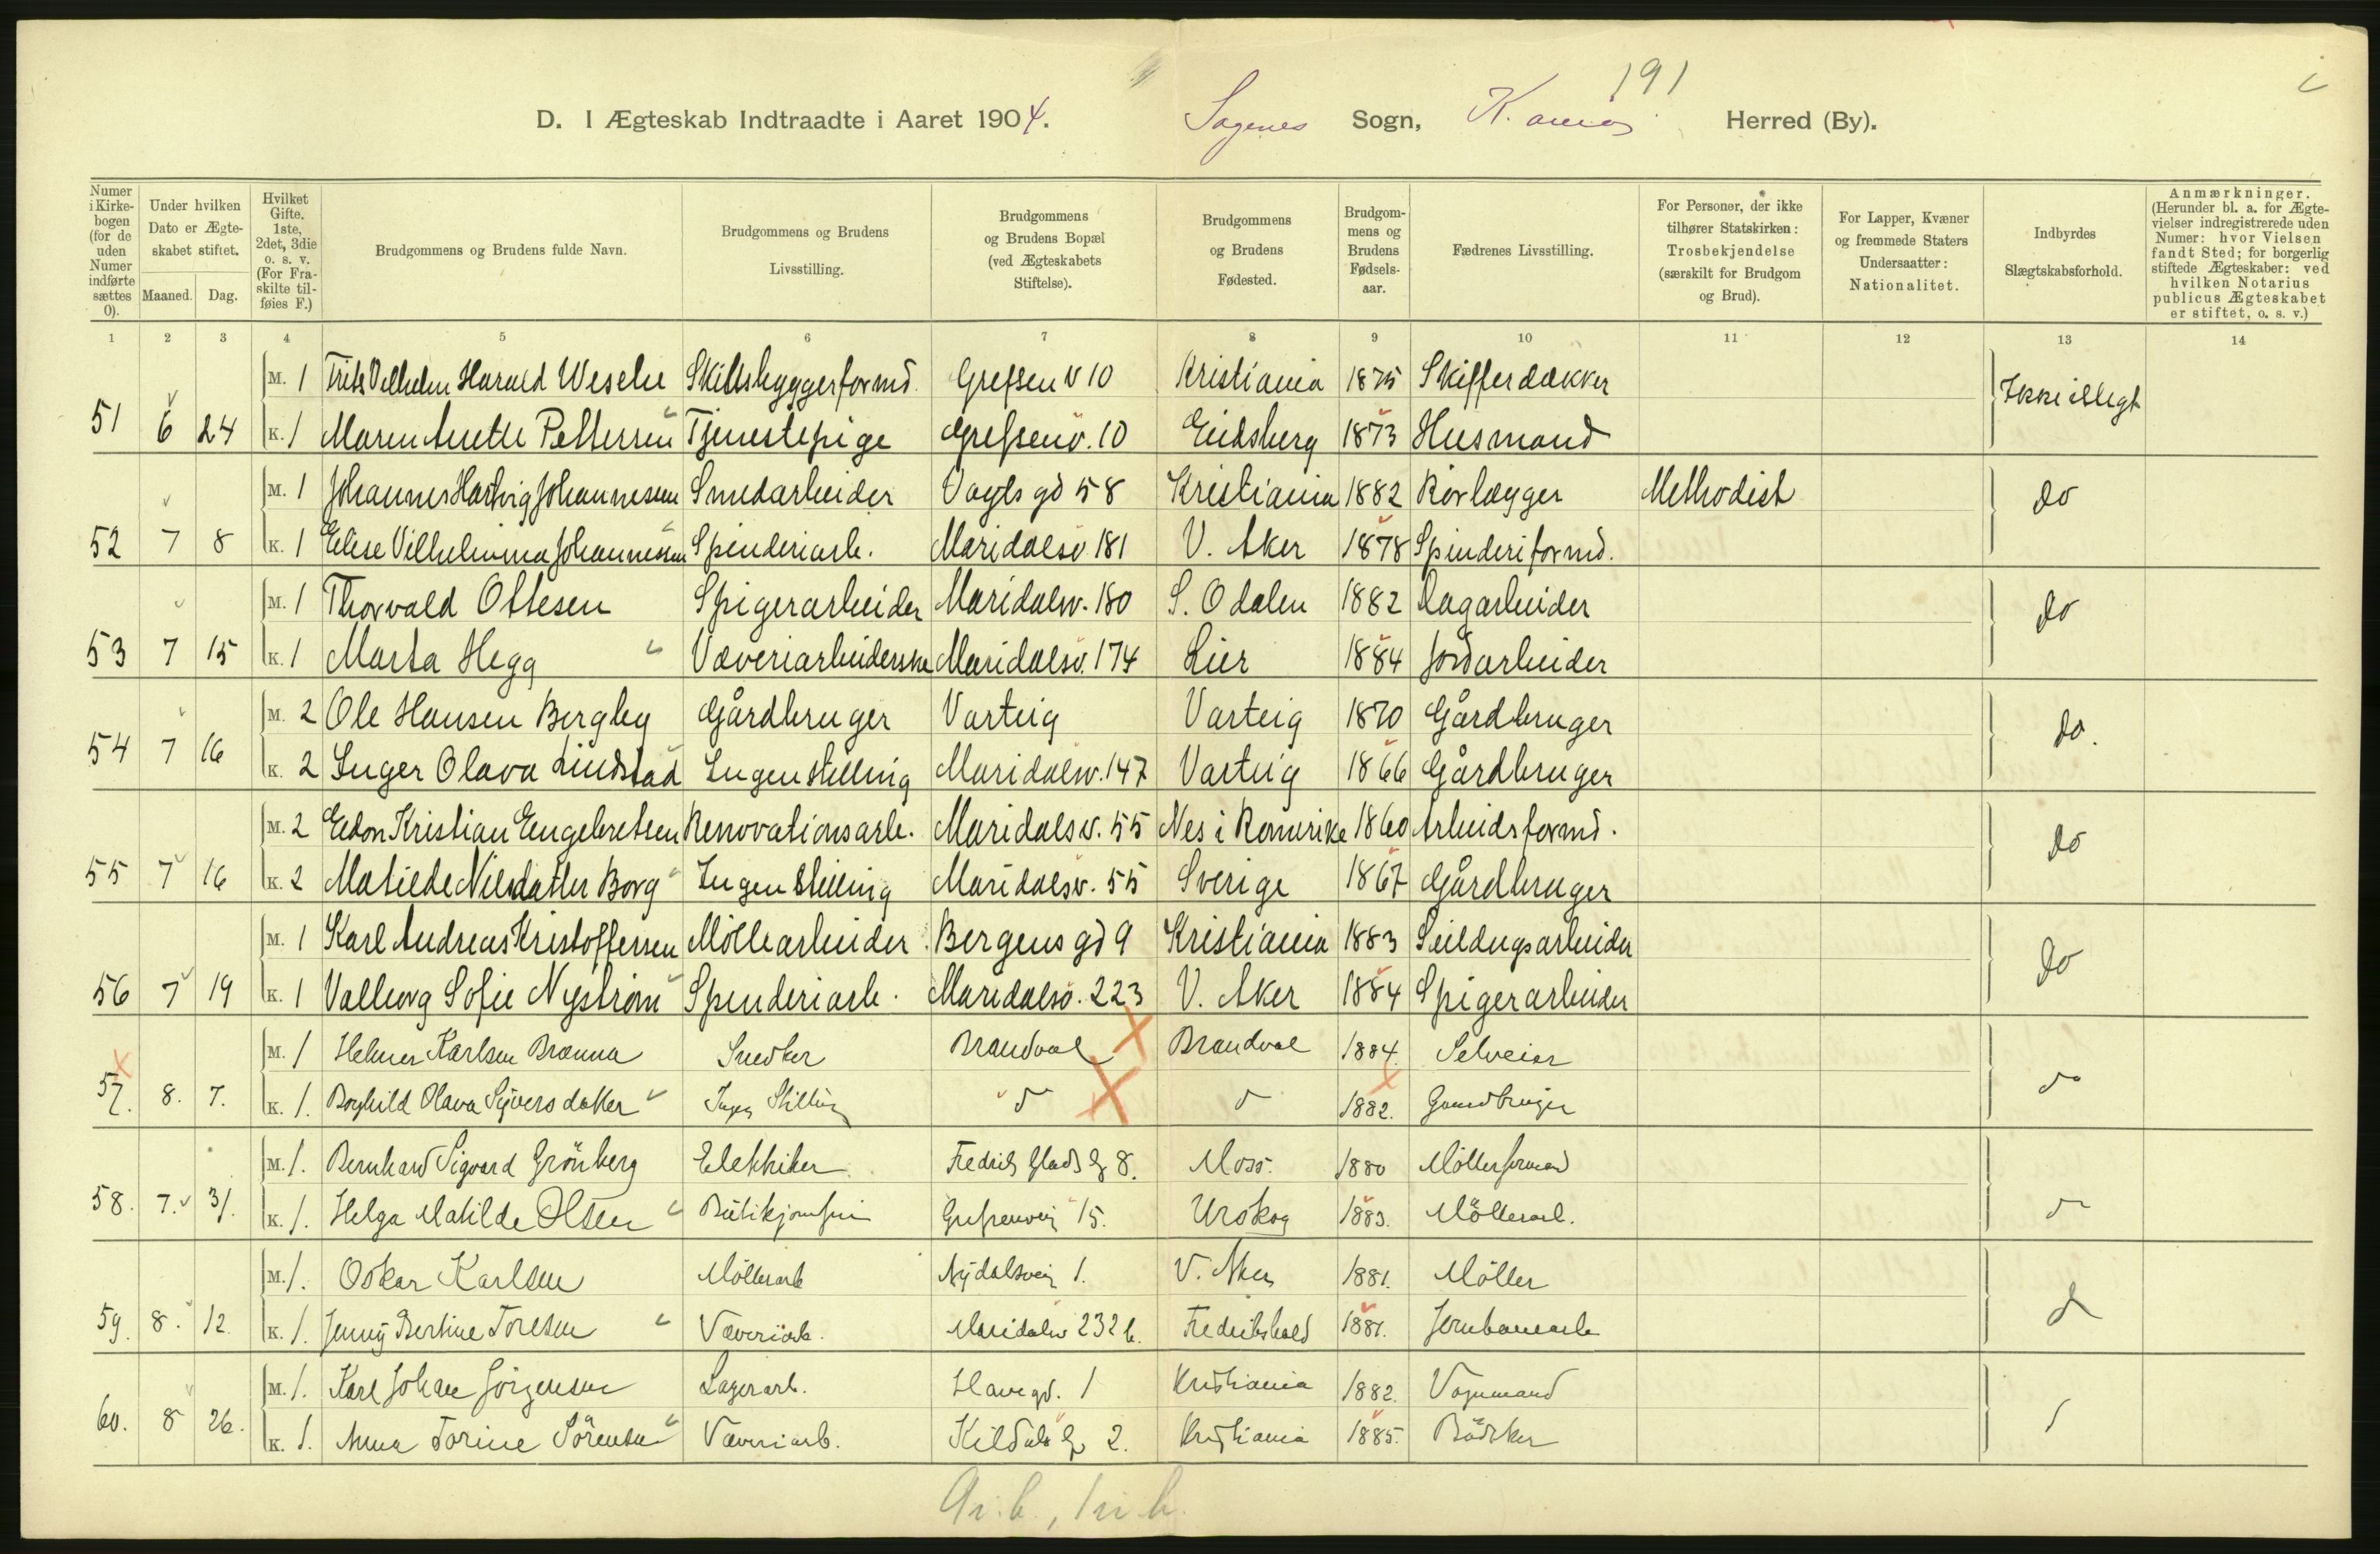 191
D. I Ægteskab Indtraadte i Aaret 1904. Sagenes Sogn, K.ania Herred (By).
Numer i Kirkebogen (for de uden Numer indførte sættes 0). Under hvilken Dato er Ægteskabet stiftet. Maaned. Dag. Hvilket Gifte. 1ste, 2det, 3die o. s. v. (For Fraskilte tilføies F.) Brudgommens og Brudens fulde Navn. Brudgommens og Brudens Livsstilling. Brudgommens og Brudens Bopæl (ved Ægteskabets Stiftelse). Brudgommens og Brudens Fødested. Brudgommens og Brudens Fødselsaar. Fædrenes Livsstilling. For Personer, der ikke tilhører Statskirken: Trosbekjendelse (særskilt for Brudgom og Brud). For Lapper, Kvæner og fremmede Staters Undersaatter: Nationalitet. Indbyrdes Slægtskabsforhold. Anmærkninger. (Herunder bl. a. for Ægtevielser indregistrerede uden Numer: hvor Vielsen fandt Sted; for borgerlig stiftede Ægteskaber: ved hvilken Notarius publicus Ægteskabet er stiftet, o. s. v.)
1 2 3 4 5 6 7 8 9 10 11 12 13 14
M. 1 Frits Vilhelm Harald Weselie Skibsbyggerformd. Grefsen v 10 Kristiania 1875 Skifferdækker Ikke illegt
51 6 24 K. 1 Maren Anette Pettersen Tjenestepige Grefsenv. 10 Eidsberg 1873 Husmand
M. 1 Johannes Hartvig Johannesen Smedarbeider Vogts gd 58 Kristiania 1882 Rörlægger Methodist do
52 7 8 K. 1 Elise Vilhelmina Johannesen Spinderiarb. Maridalsv 181 V. Aker 1878 Spinderiformd.
M. 1 Thorvald Ottesen Spigerarbeider Maridalsv. 180 S. Odalen 1882 Dagarbeider do
53 7 15 K. 1 Marta Hegg Væveriarbeiderske Maridalsv. 174 Lier 1884 Jordarbeider
M. 2 Ole Hansen Bergby Gårdbruger Varteig Varteig 1870 Gårdbruger do.
54 7 16 K. 2 Inger Olava Lindstad Ingen stilling Maridalsv. 147 Varteig 1866 Gårdbruger
M. 2 Edon Kristian Engebretsen Renovationsarb. Maridalsv. 55 Nes i Romerike 1860 Arbeidsformd. do
55 7 16 K. 2 Matilde Nilsdatter Borg Ingen Stilling Maridalsv. 55 Sverige 1867 Gårdbruger
M. 1 Karl Andreas Kristoffersen Möllearbeider Bergens gd 9 Kristiania 1883 Seildugsarbeider do
56 7 19 K. 1 Valborg Sofie Nyström Spinderiarb. Maridalsv. 223 V. Aker 1884 Spigerarbeider
M. 1 Helmer Karlsen Brænna Snedker Brandval Brandval 1884. Selveier do
57. 8. 7. K. 1. Borghild Olava Syversdatter Ingen Stilling d d 1882. Gaardbruger
M. 1. Bernhard Sigvard Grönberg Elektriker Fredrik Glads g 8. Moss. 1880 Möllerformand
58. 7. 31. K. 1. Helga Matilde Olsen Butikjomfru Grefsenvei 15. Urskog 1883. Möllerarb.
M. 1. Oskar Karlsen Möllerarb Nydalsvei 1. V. Aker 1881. Möller
59. 8. 12. K. 1. Jenny Bertine Toresen Væveriarb. Maridalsv 232 b. Fredrikshald 1881. Jernbanearb
M. 1. Karl Johan Jörgensen Lagerarb. Havegd. 1 Kristiania 1882. Vognmand
60. 8 26. K. 1. Anna Torine Sörensen Væveriarb. Kildals g 2. Kristiania 1885. Bödker
9 i. b., 1 u. b.